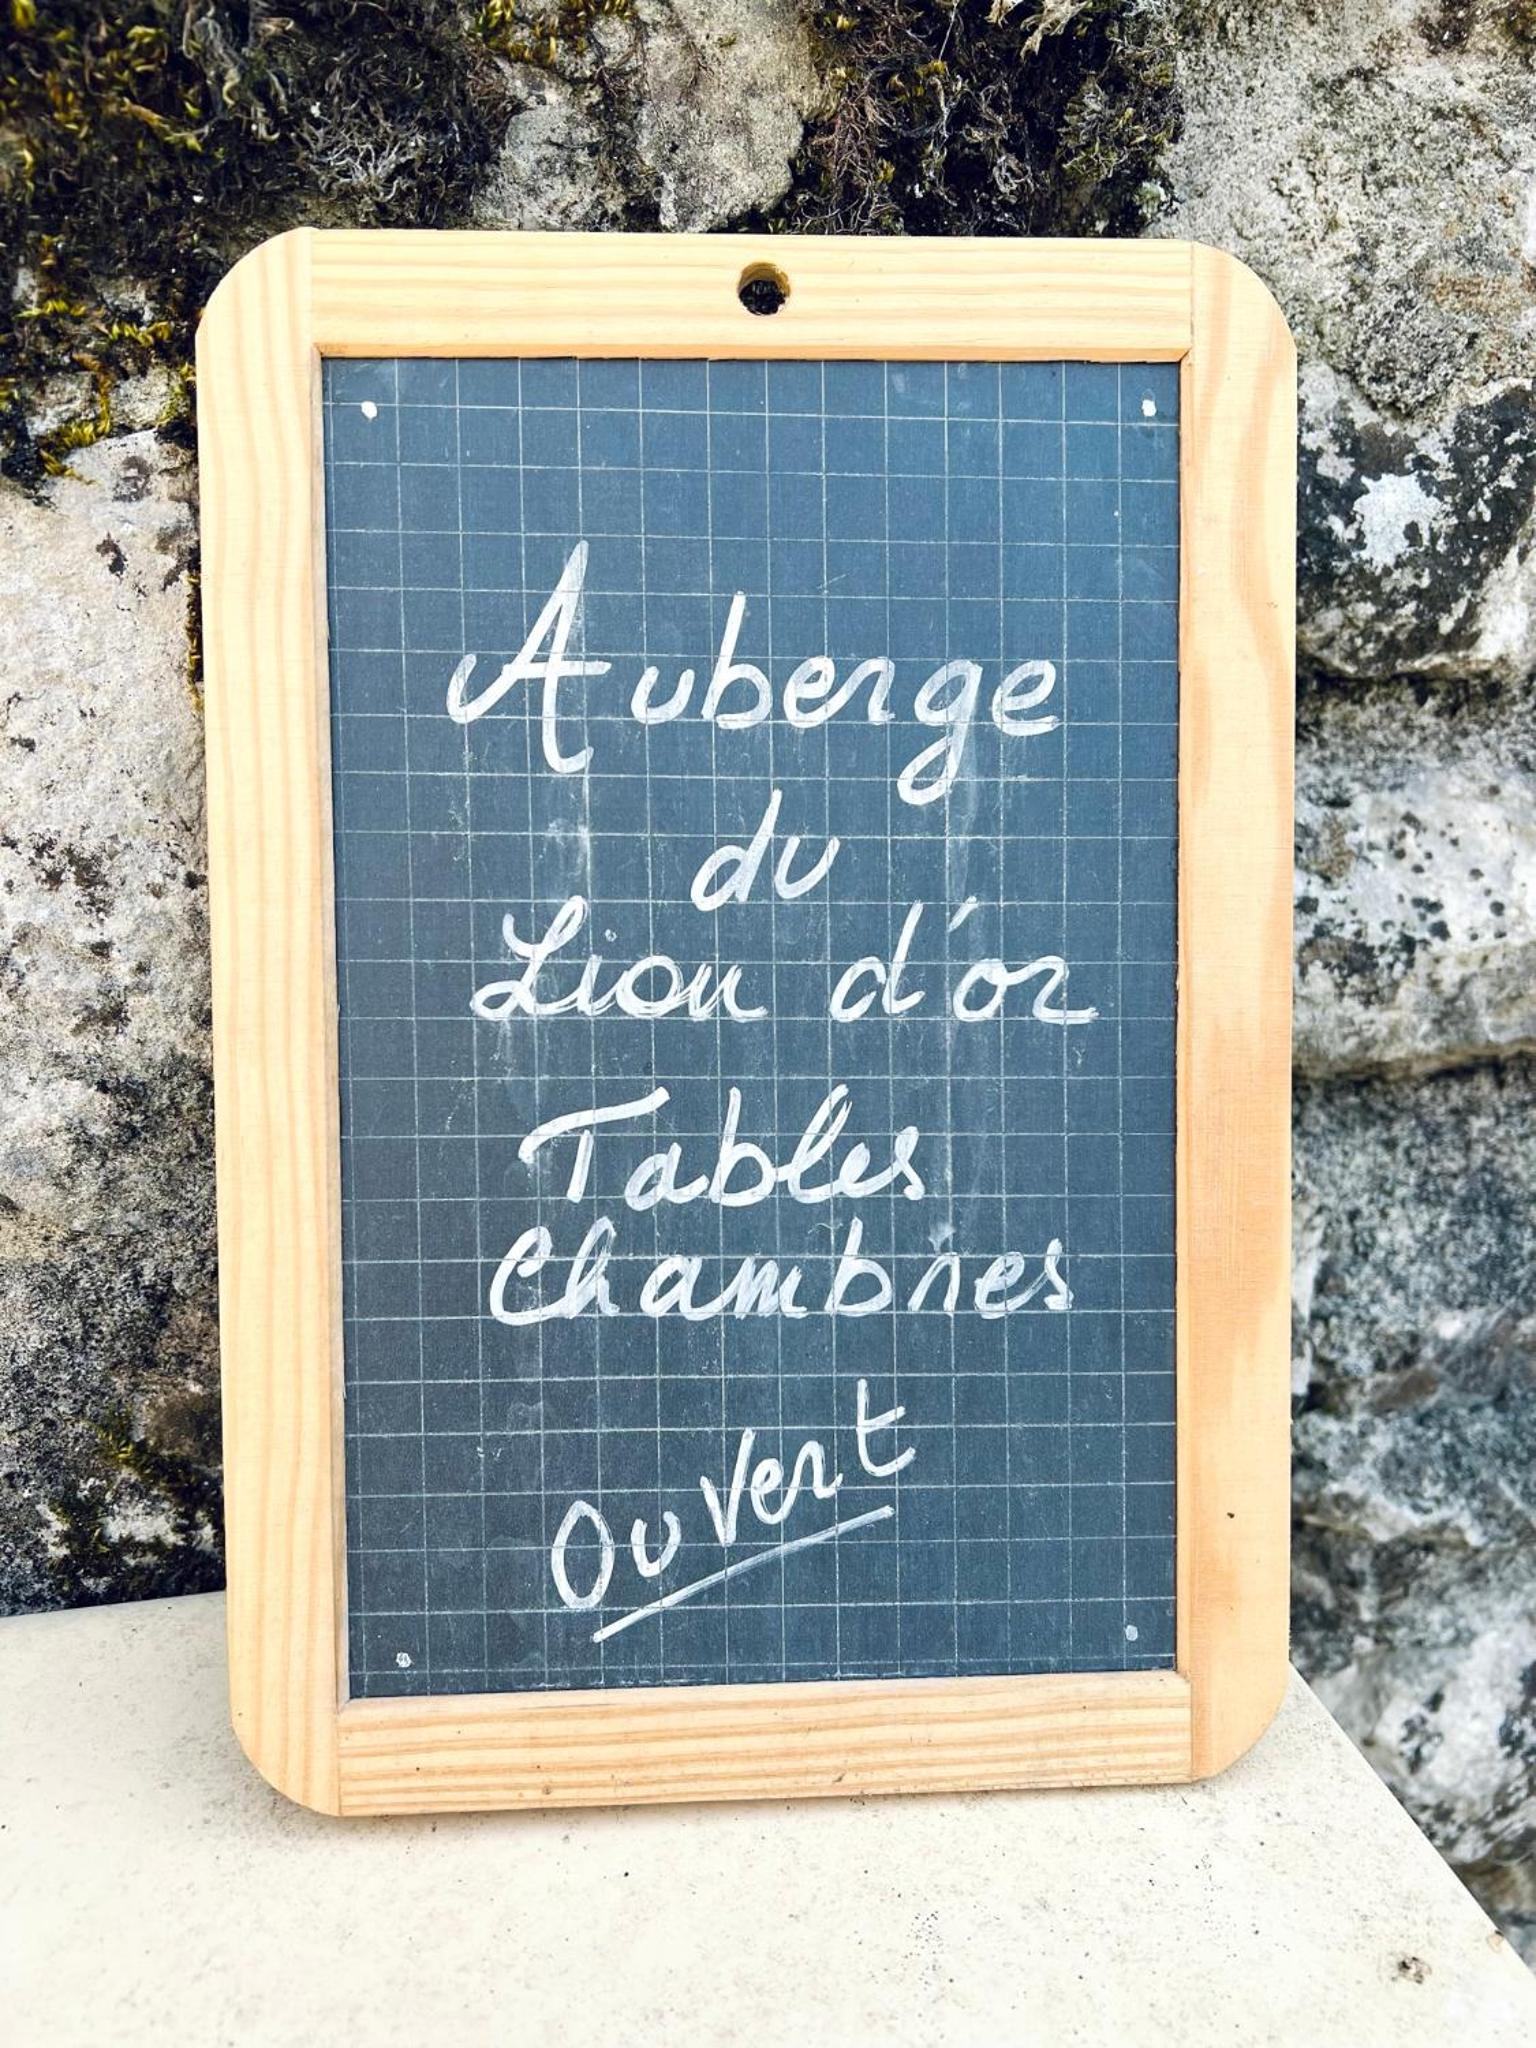 Auberge
du
Lion d'or
Tables
Chambres
Ouvert